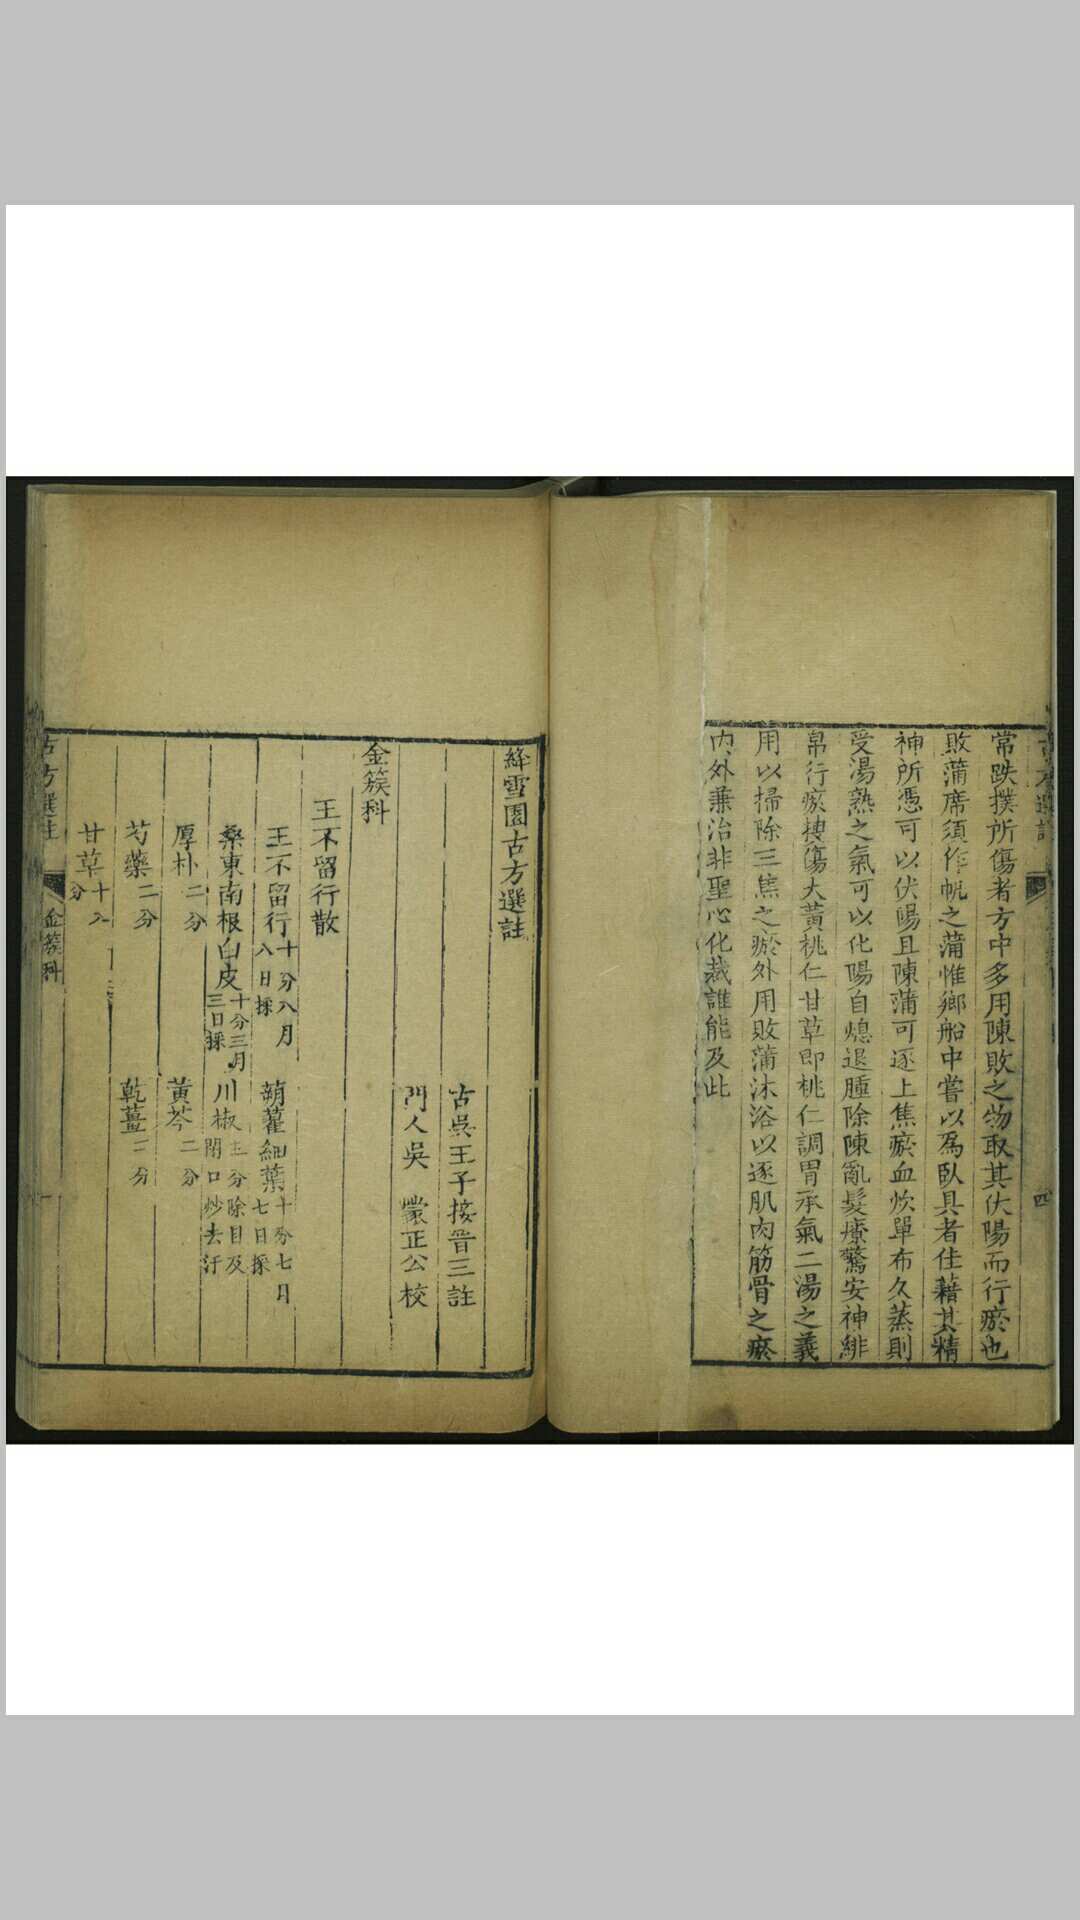 常跌撲所傷者方中多用陳敗之物取其伏陽而行瘀也
敗蒲席須作帆之蒲惟鄉船中嘗以爲臥具者佳藉其精
神所憑可以伏陽且陳蒲可逐上焦瘀血炊單布久蒸則
受湯熟之氣可以化陽自熄退腫除陳亂髮療驚安神緋
帛行瘀摟傷大黃桃仁甘草即桃仁調胃承氣二湯之義
用以掃除三焦之瘀外用敗蒲沐浴以逐肌肉筋骨之瘀
內外兼治非聖心化裁誰能及此
四
絳雪園古方選註
古吳王子接晉三註
門人吳 蒙正公校
金簇科
王不留行散
王不留行十分八月八日採 蒴藋細葉十分七月七日採
桑東南根白皮十分三月三日採 川椒三分除目及閉口炒去汗
厚朴二分 黃芩二分
芍藥二分 乾薑二分
甘草十八分
古方選註 金簇科